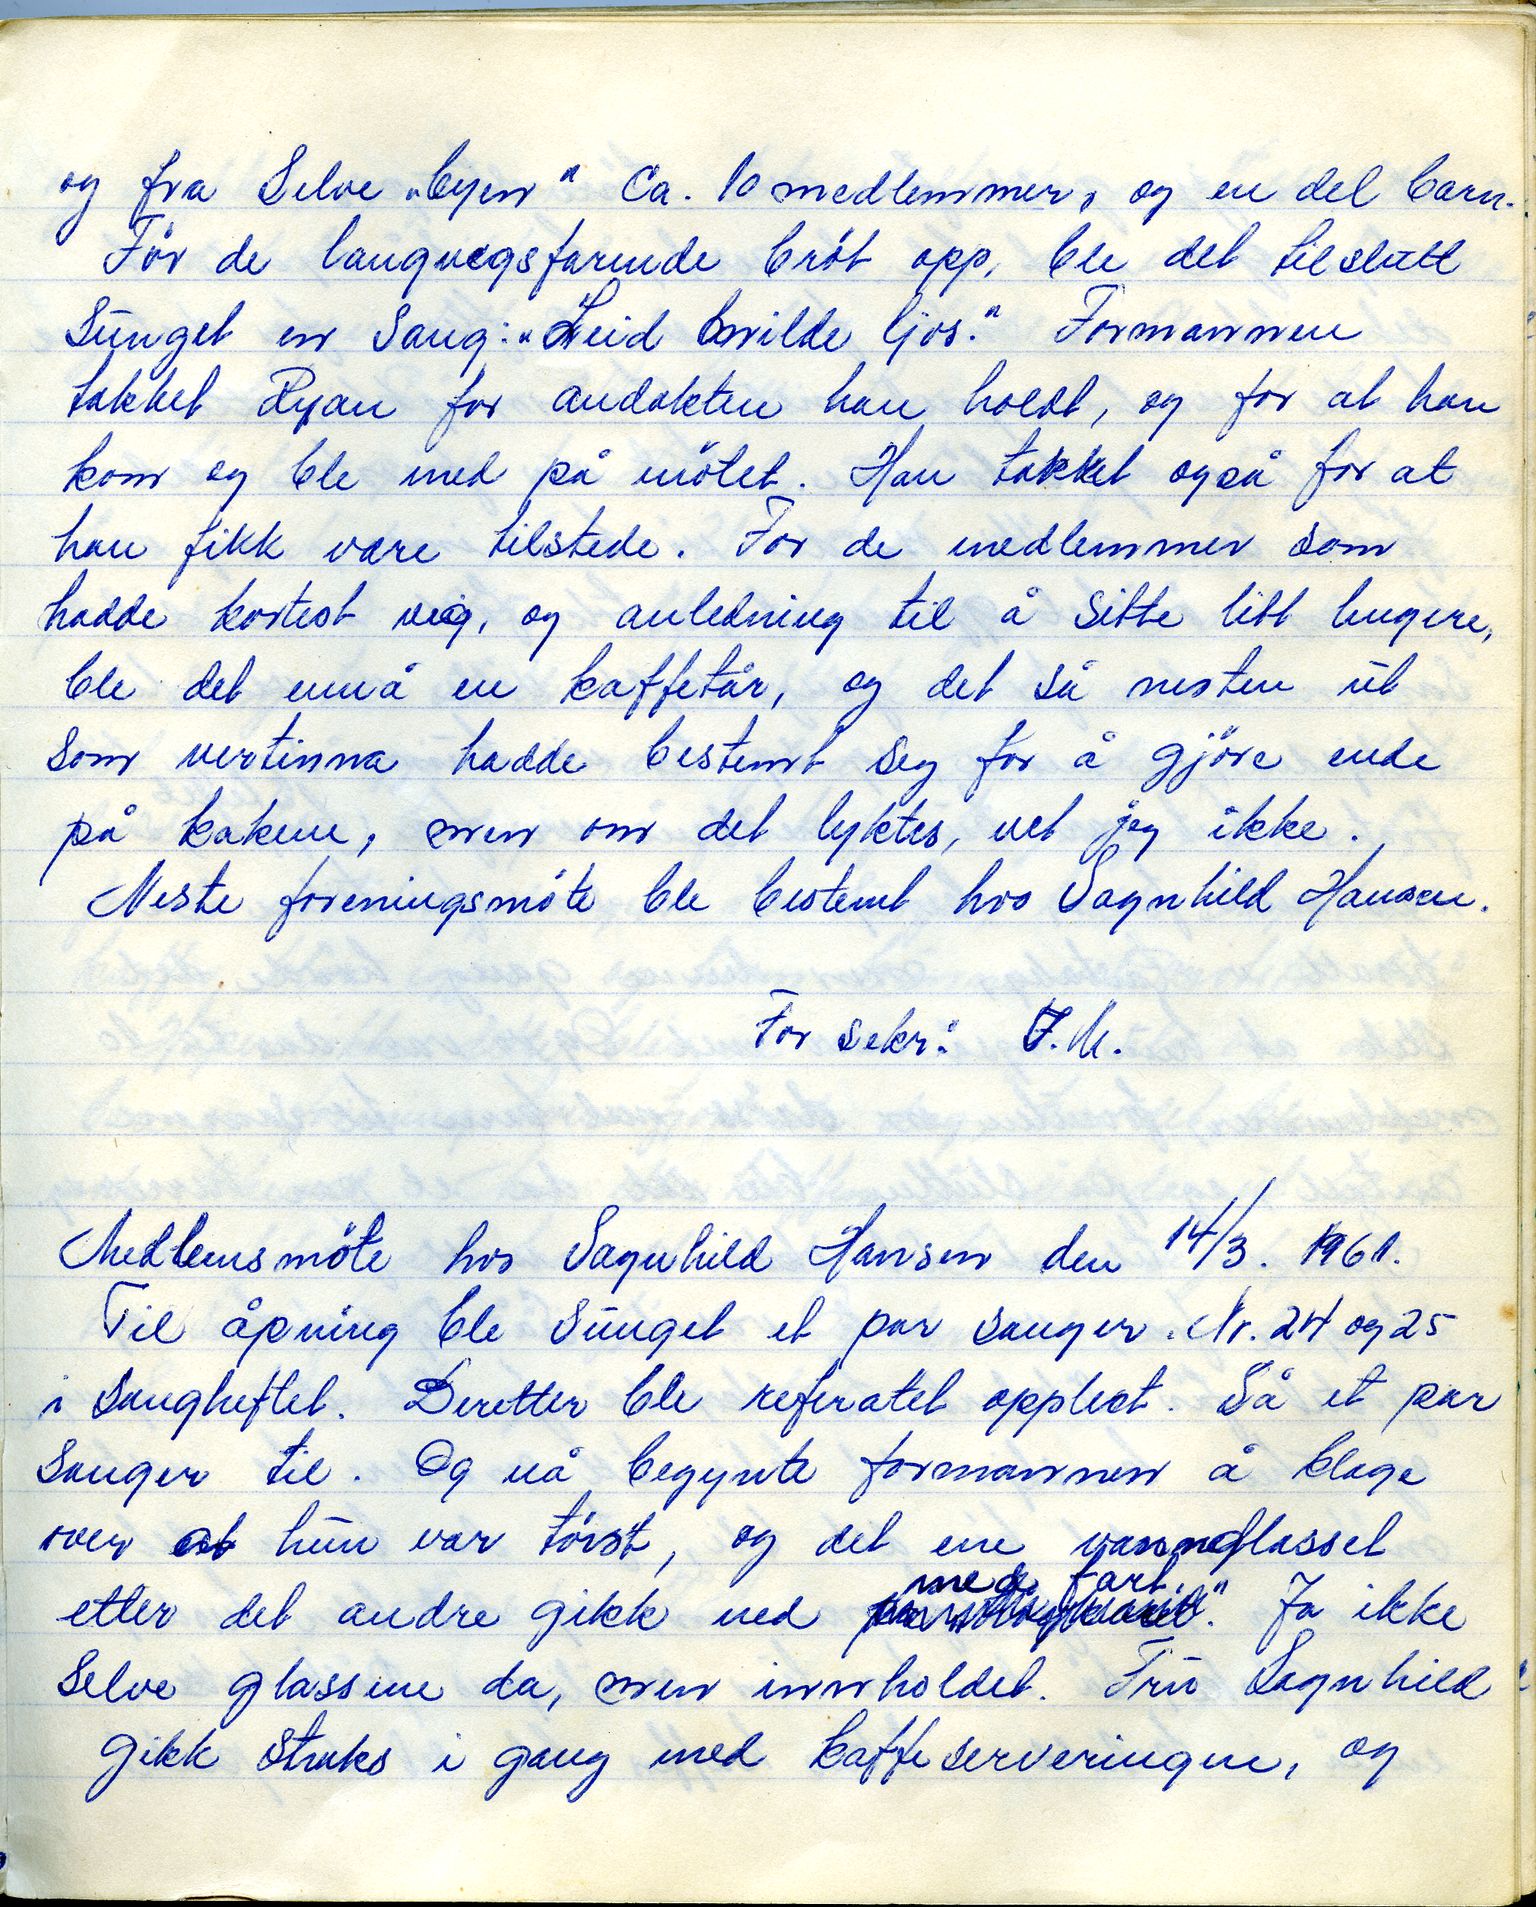 og fra Selve „byen" Ca. 10 medlemmer, og en del barn.
För de langvegsfarende bröt opp, ble det tilslutt
sunget en sang: „Leid milde ljos." Formannen
takket Ryan for andakten han holdt, og for at han
kom og ble med på mötet. Han takket også for at
han fikk være tilstede. For de medlemmer som
hadde kortest veg, og anledning til å sitte litt lengere,
ble det ennå en kaffetår, og det så nesten ut
som vertinna hadde bestemt seg for å gjöre ende
på kakene, men om det lyktes, vet jeg ikke.
Neste foreningsmöte ble bestemt hos Sagnhild Hansen.
For sekr: J.M.
Medlemsmöte hos Sagnhild Hansen den 14/3. 1961.
Til åpning ble sunget et par sanger. Nr. 24 og 25
i sangheftet. Deretter ble referatet opplest. Så et par
sanger til. Og nå begynte formannen å klage
over at hun var törst, og det ene vannglasset
etter det andre gikk ned med fart. Ja ikke
selve glassene da, men innholdet. Fru Sagnhild
gikk straks i gang med kaffeserveringen, og